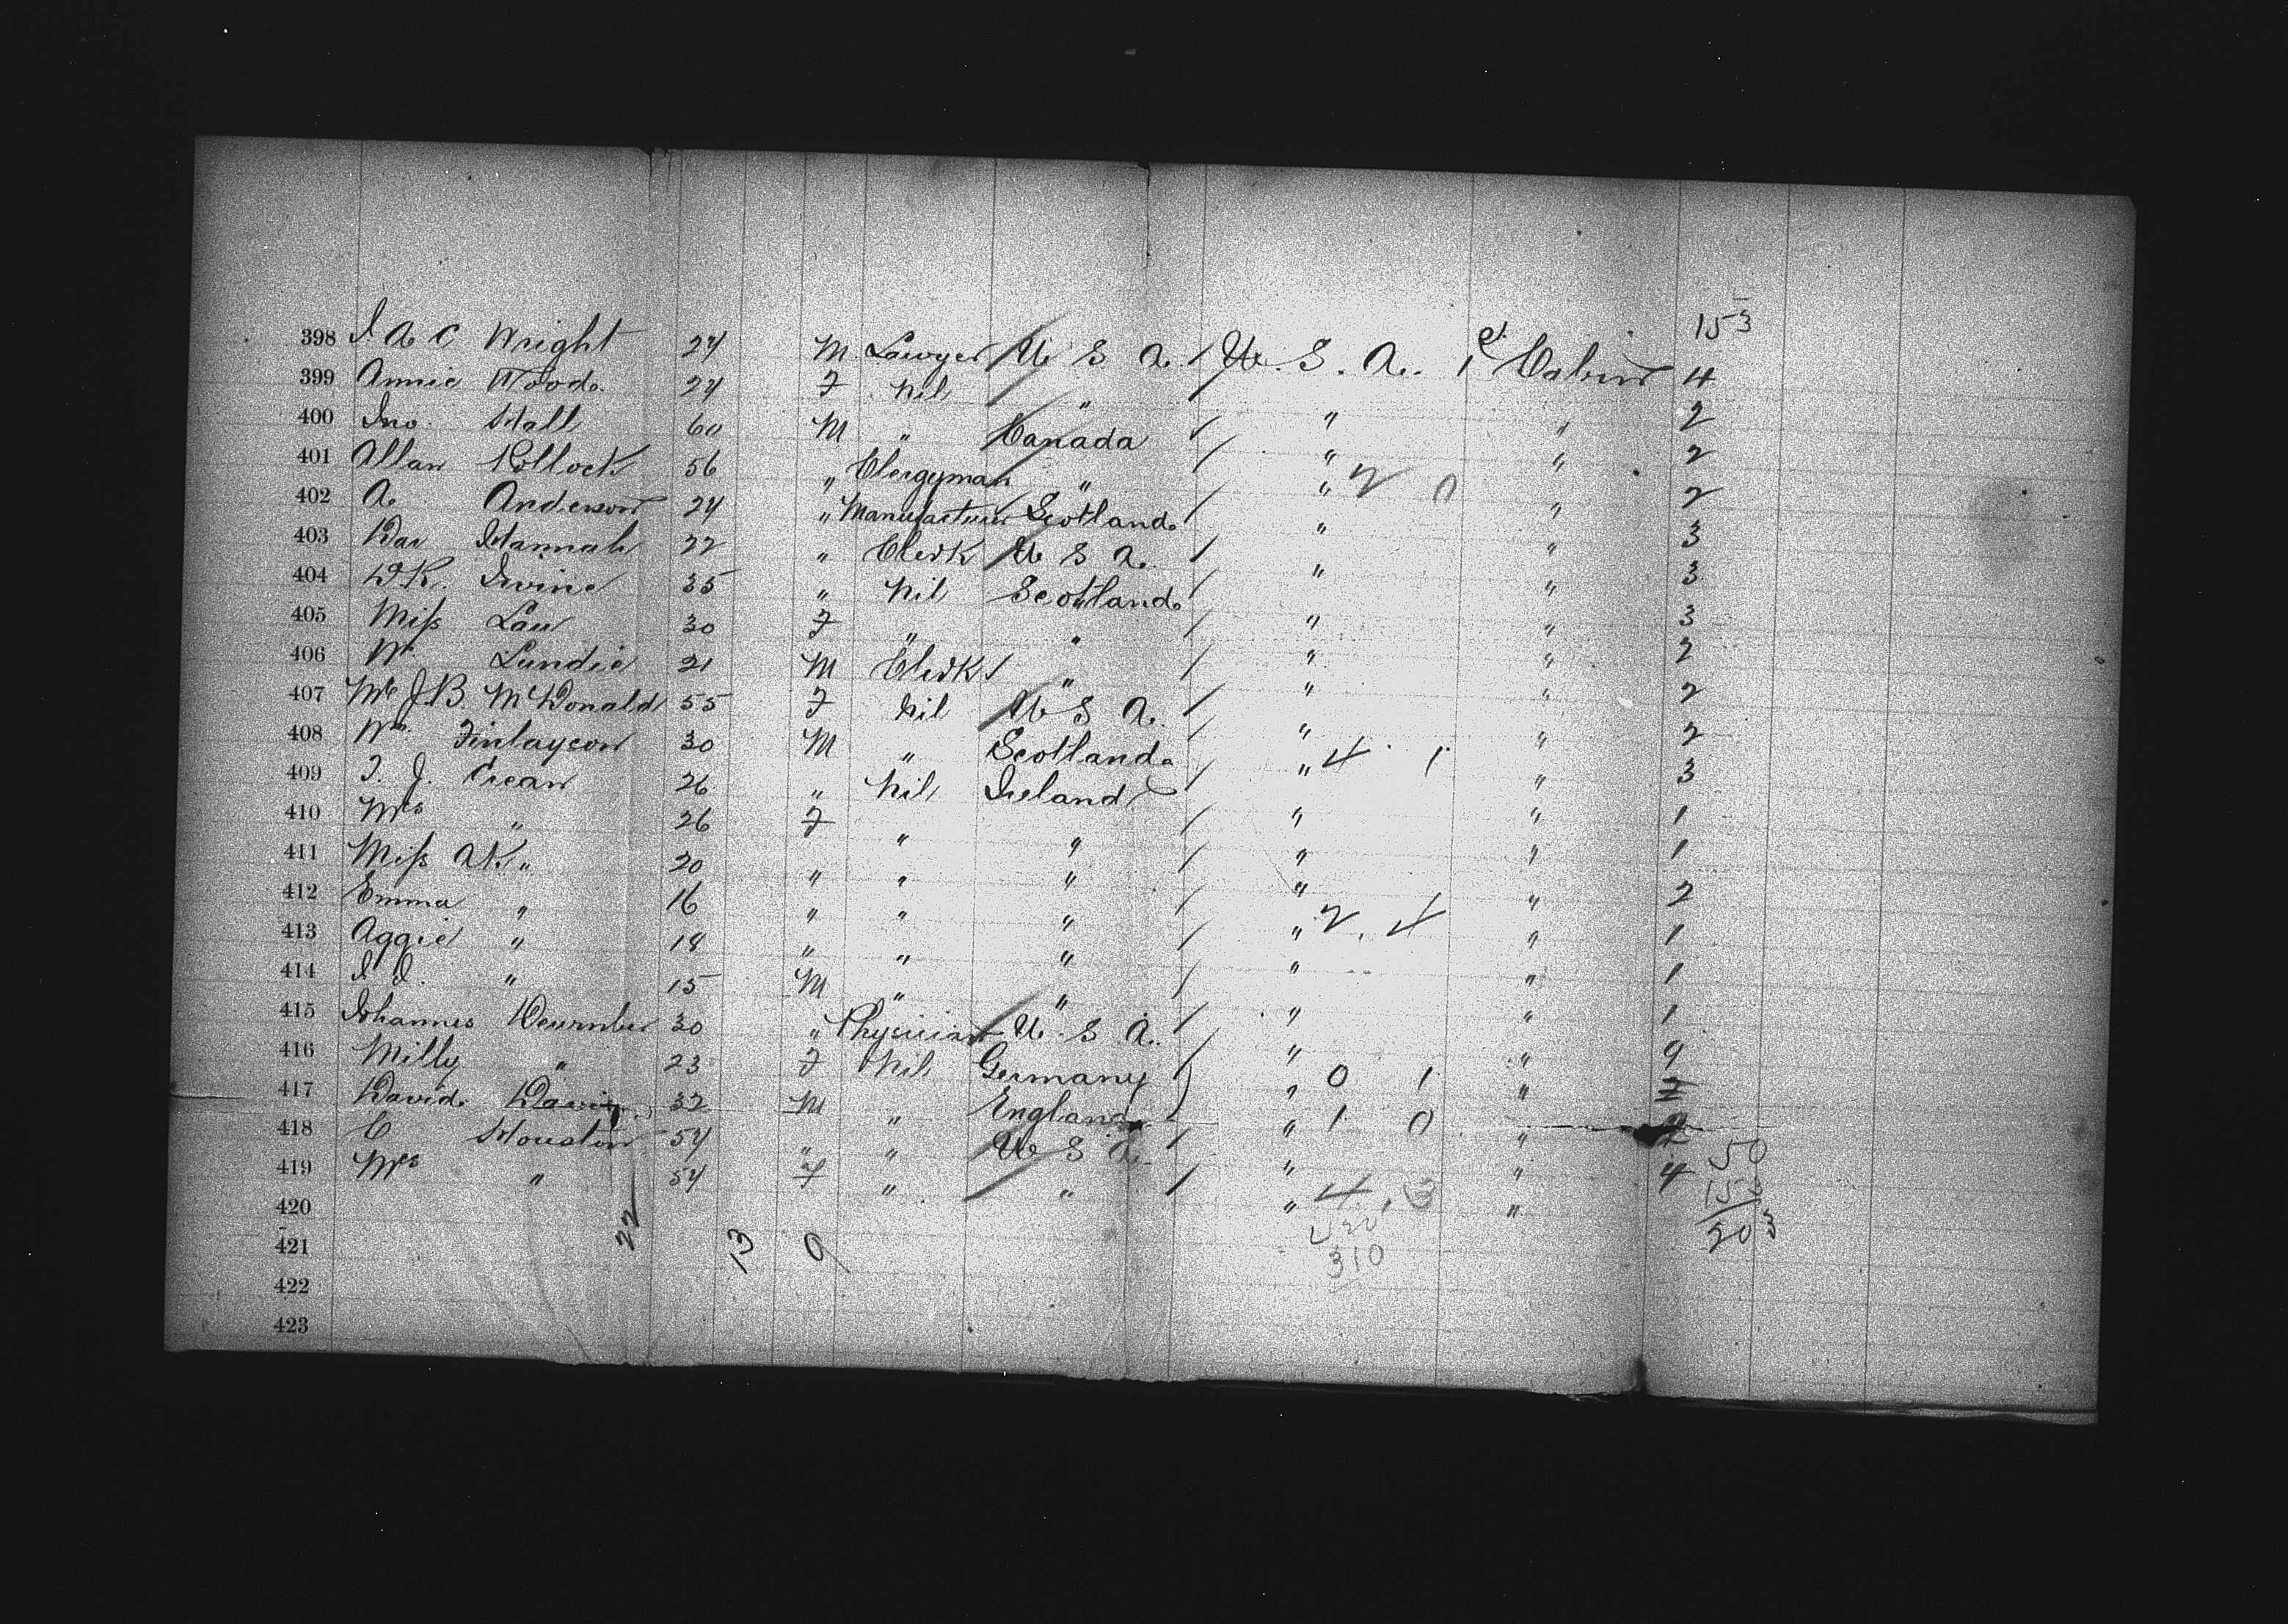 15 3
398 J A C Wright 24 M Lawyer U S A. / U. S. A. 1st Cabin 4
399 Annie Wood. 24 F Nil " / " " 2
400 Jno. Hall 60 M " Canada / " " 2
401 Allan Pollock 56 " Clergyman " / " 2 0 " 2
402 A. Anderson 24 " Manufacturer Scotland / " " 3
403 Dav Hannah 22 " Clerk U S A. / " " 3
404 D.K. Irvine 35 " Nil Scotland / " " 3
405 Miss Law 30 F " " / " " 2
406 W. Lundie 21 M Clerk " / " " 2
407 Mrs J.B. McDonald 55 F Nil U S A. / " " 2
408 Wm. Finlayson 30 M " Scotland / " 4 1 " 3
409 T. J. Crean 26 " Nil Ireland / " " 1
410 Mrs " 26 F " " / " " 1
411 Miss A K " 20 " " " / " " 2
412 Emma " 16 " " " / " 2. 4 " 1
413 Aggie " 18 " " " / " " 1
414 J. J. " 15 M " " / " " 1
415 Johannes 30 " Physician U. S A. / " " 9
416 Milly " 23 F Nil Germany ) " 0 1 "
417 David 32 M " England " 1 0 " 2
418 C Houston 54 " " U S A. / " " 4
419 Mrs " 54 F " " / " 4, 3 "
50
153
203
420
22 13 9
421
310
422
423